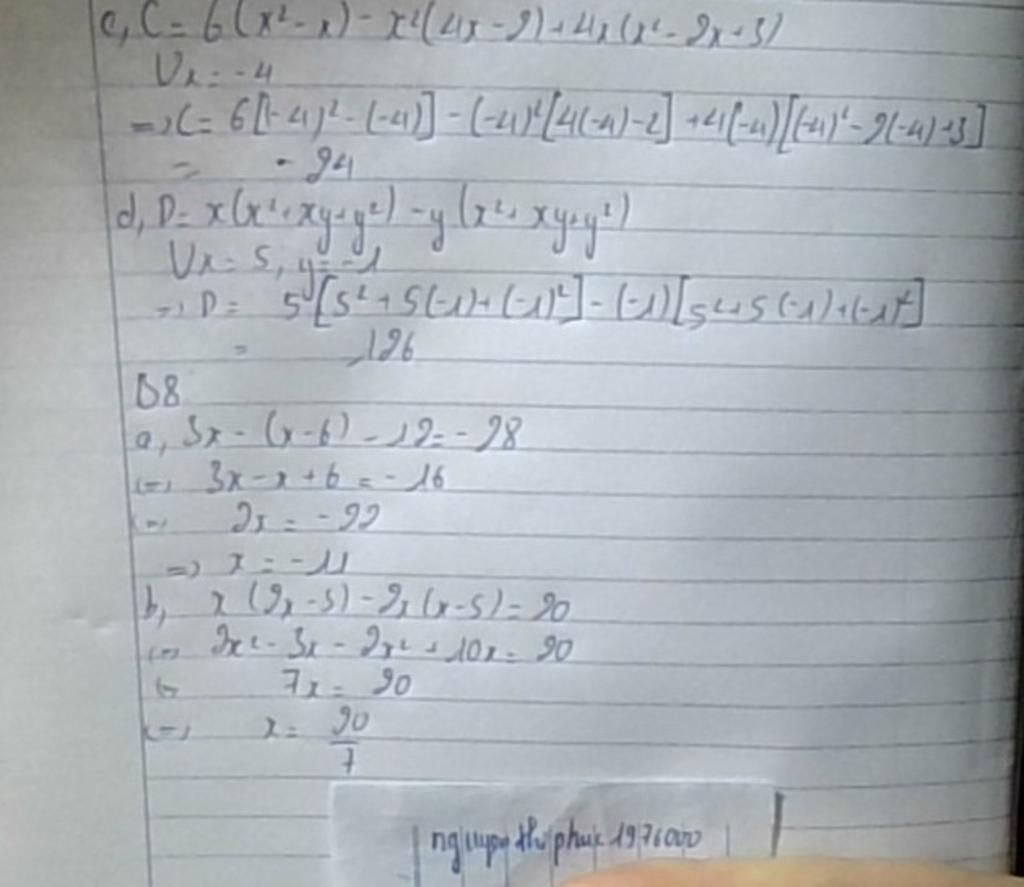 c, C = 6(x² - x) - x²(4x - 2) + 4x(x² - 2x + 3)
Vx = -4
=> C = 6[(-4)² - (-4)] - (-4)²[4(-4) - 2] + 4(-4)[(-4)² - 2(-4) + 3]
= -24
d, D = x(x² + xy + y²) - y(x² + xy + y²)
Vx = 5, y = -1
=> D = 5[5² + 5(-1) + (-1)²] - (-1)[5² + 5(-1) + (-1)²]
= 126
B8
a, 3x - (x - 6) - 12 = -28
<=> 3x - x + 6 = -16
<=> 2x = -22
=> x = -11
b, x(2x - 3) - 2x(x - 5) = 20
<=> 2x² - 3x - 2x² + 10x = 20
<=> 7x = 20
<=> x = 20/7
thu phuk 1976000